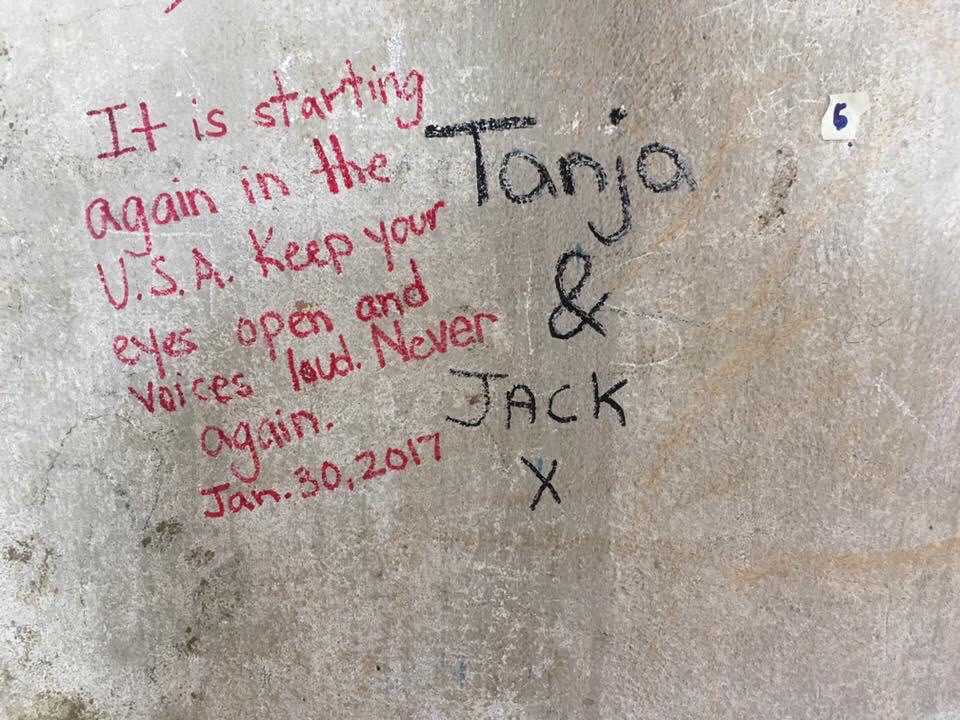 It is starting
again in the
U.S.A. Keep your
eyes open and
voices loud. Never
again.
Jan. 30, 2017
Tanja
&
JACK
X
6